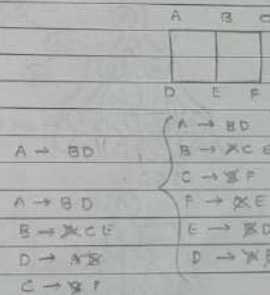 A B C
D E F
A → BD
A → BD
B → A C E
D → A B
C → B F
A → BD
B → A C E
C → B F
F → C E
E → B D
D → A